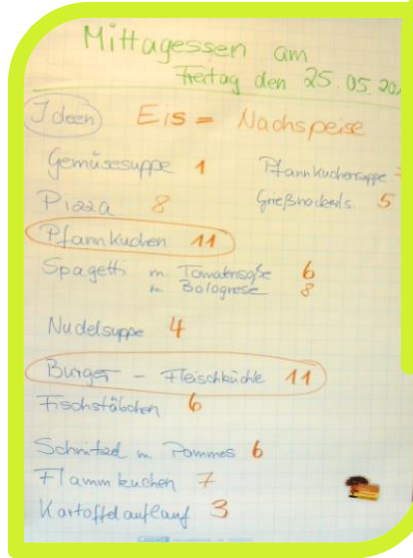 Mittagessen am
Freitag den 25.05.20
Ideen Eis = Nachspeise
Gemüsesuppe 1
Pfannkuchensuppe
Pizza 8
Grießnockerls. 5
Pfannkuchen 11
Spagetti m. Tomatensoße 6
m. Bolognese 8
Nudelsuppe 4
Burger - Fleischküchle 11
Fischstäbchen 6
Schnitzel m. Pommes 6
Flammkuchen 7
Kartoffelauflauf 3